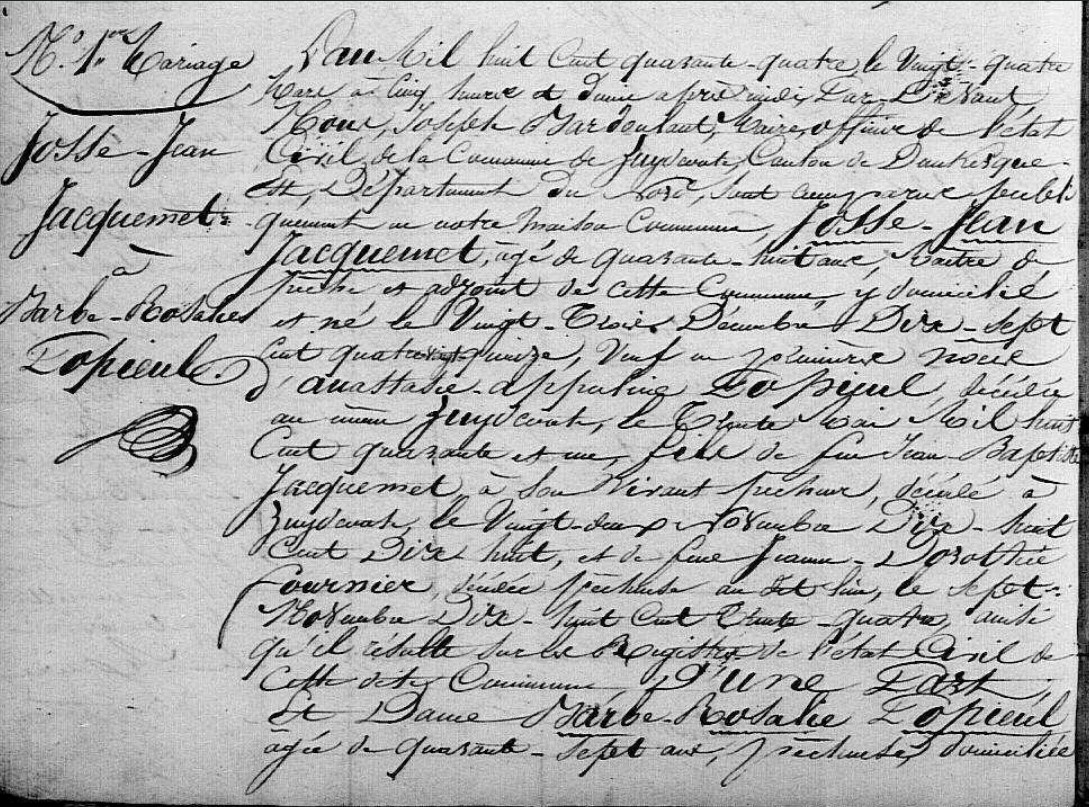 N.º 1.er Mariage
Josse-Jean
Jacquemet
à
Barbe-Rosalie
Topieul.
L'an Mil huit Cent quarante-quatre, le Vingt-quatre
Mars à Cinq heures et demie après midi, Par Devant
Nous, Joseph Maire, officier de l'état
Civil de la Commune de Zuydcoote, Canton de Dunkerque-
Est, Département du Nord, sont comparus publi
quement en notre maison Commune, Josse-Jean
Jacquemet, âgé de quarante-huit ans, Maître de
pêche et adjoint de cette Commune, y domicilié
et né le Vingt-Trois Décembre Dix-Sept
Cent quatrevingt quinze, Veuf en première noce
d'anastasie-appoline Topieul, décédée
au même Zuydcoote, le Trente Mai Mil huit
Cent quarante et un, fils de feu Jean-Baptiste
Jacquemet, à Son Vivant pêcheur, décédé à
Zuydcoote, le Vingt-deux Novembre Dix-huit
Cent Dix huit, et de feue Jeanne-Dorothée
Fournier, décédée pêcheuse au dit lieu, le Sept
Novembre Dix-huit Cent Trente-quatre, ainsi
qu'il résulte sur les Registres de l'état Civil de
Cette dite Commune, D'une Part;
Et Dame Barbe-Rosalie Topieul
âgée de quarante-Sept ans, pêcheuse, domiciliée